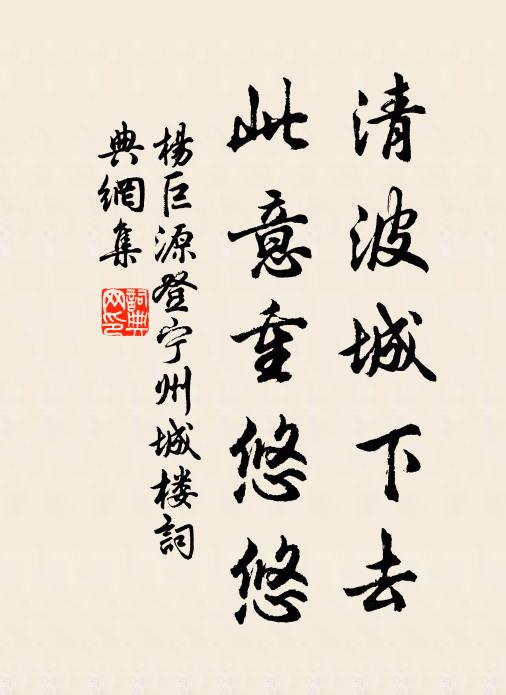 清波城下去
此意重悠悠
杨巨源登宁州城楼词
典網集
詞典网印